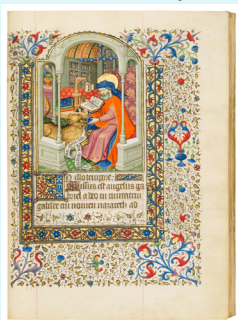 In illo tempore.
Missus est angelus ga
briel a deo in civitatem
galilee cui nomen nazareth ad